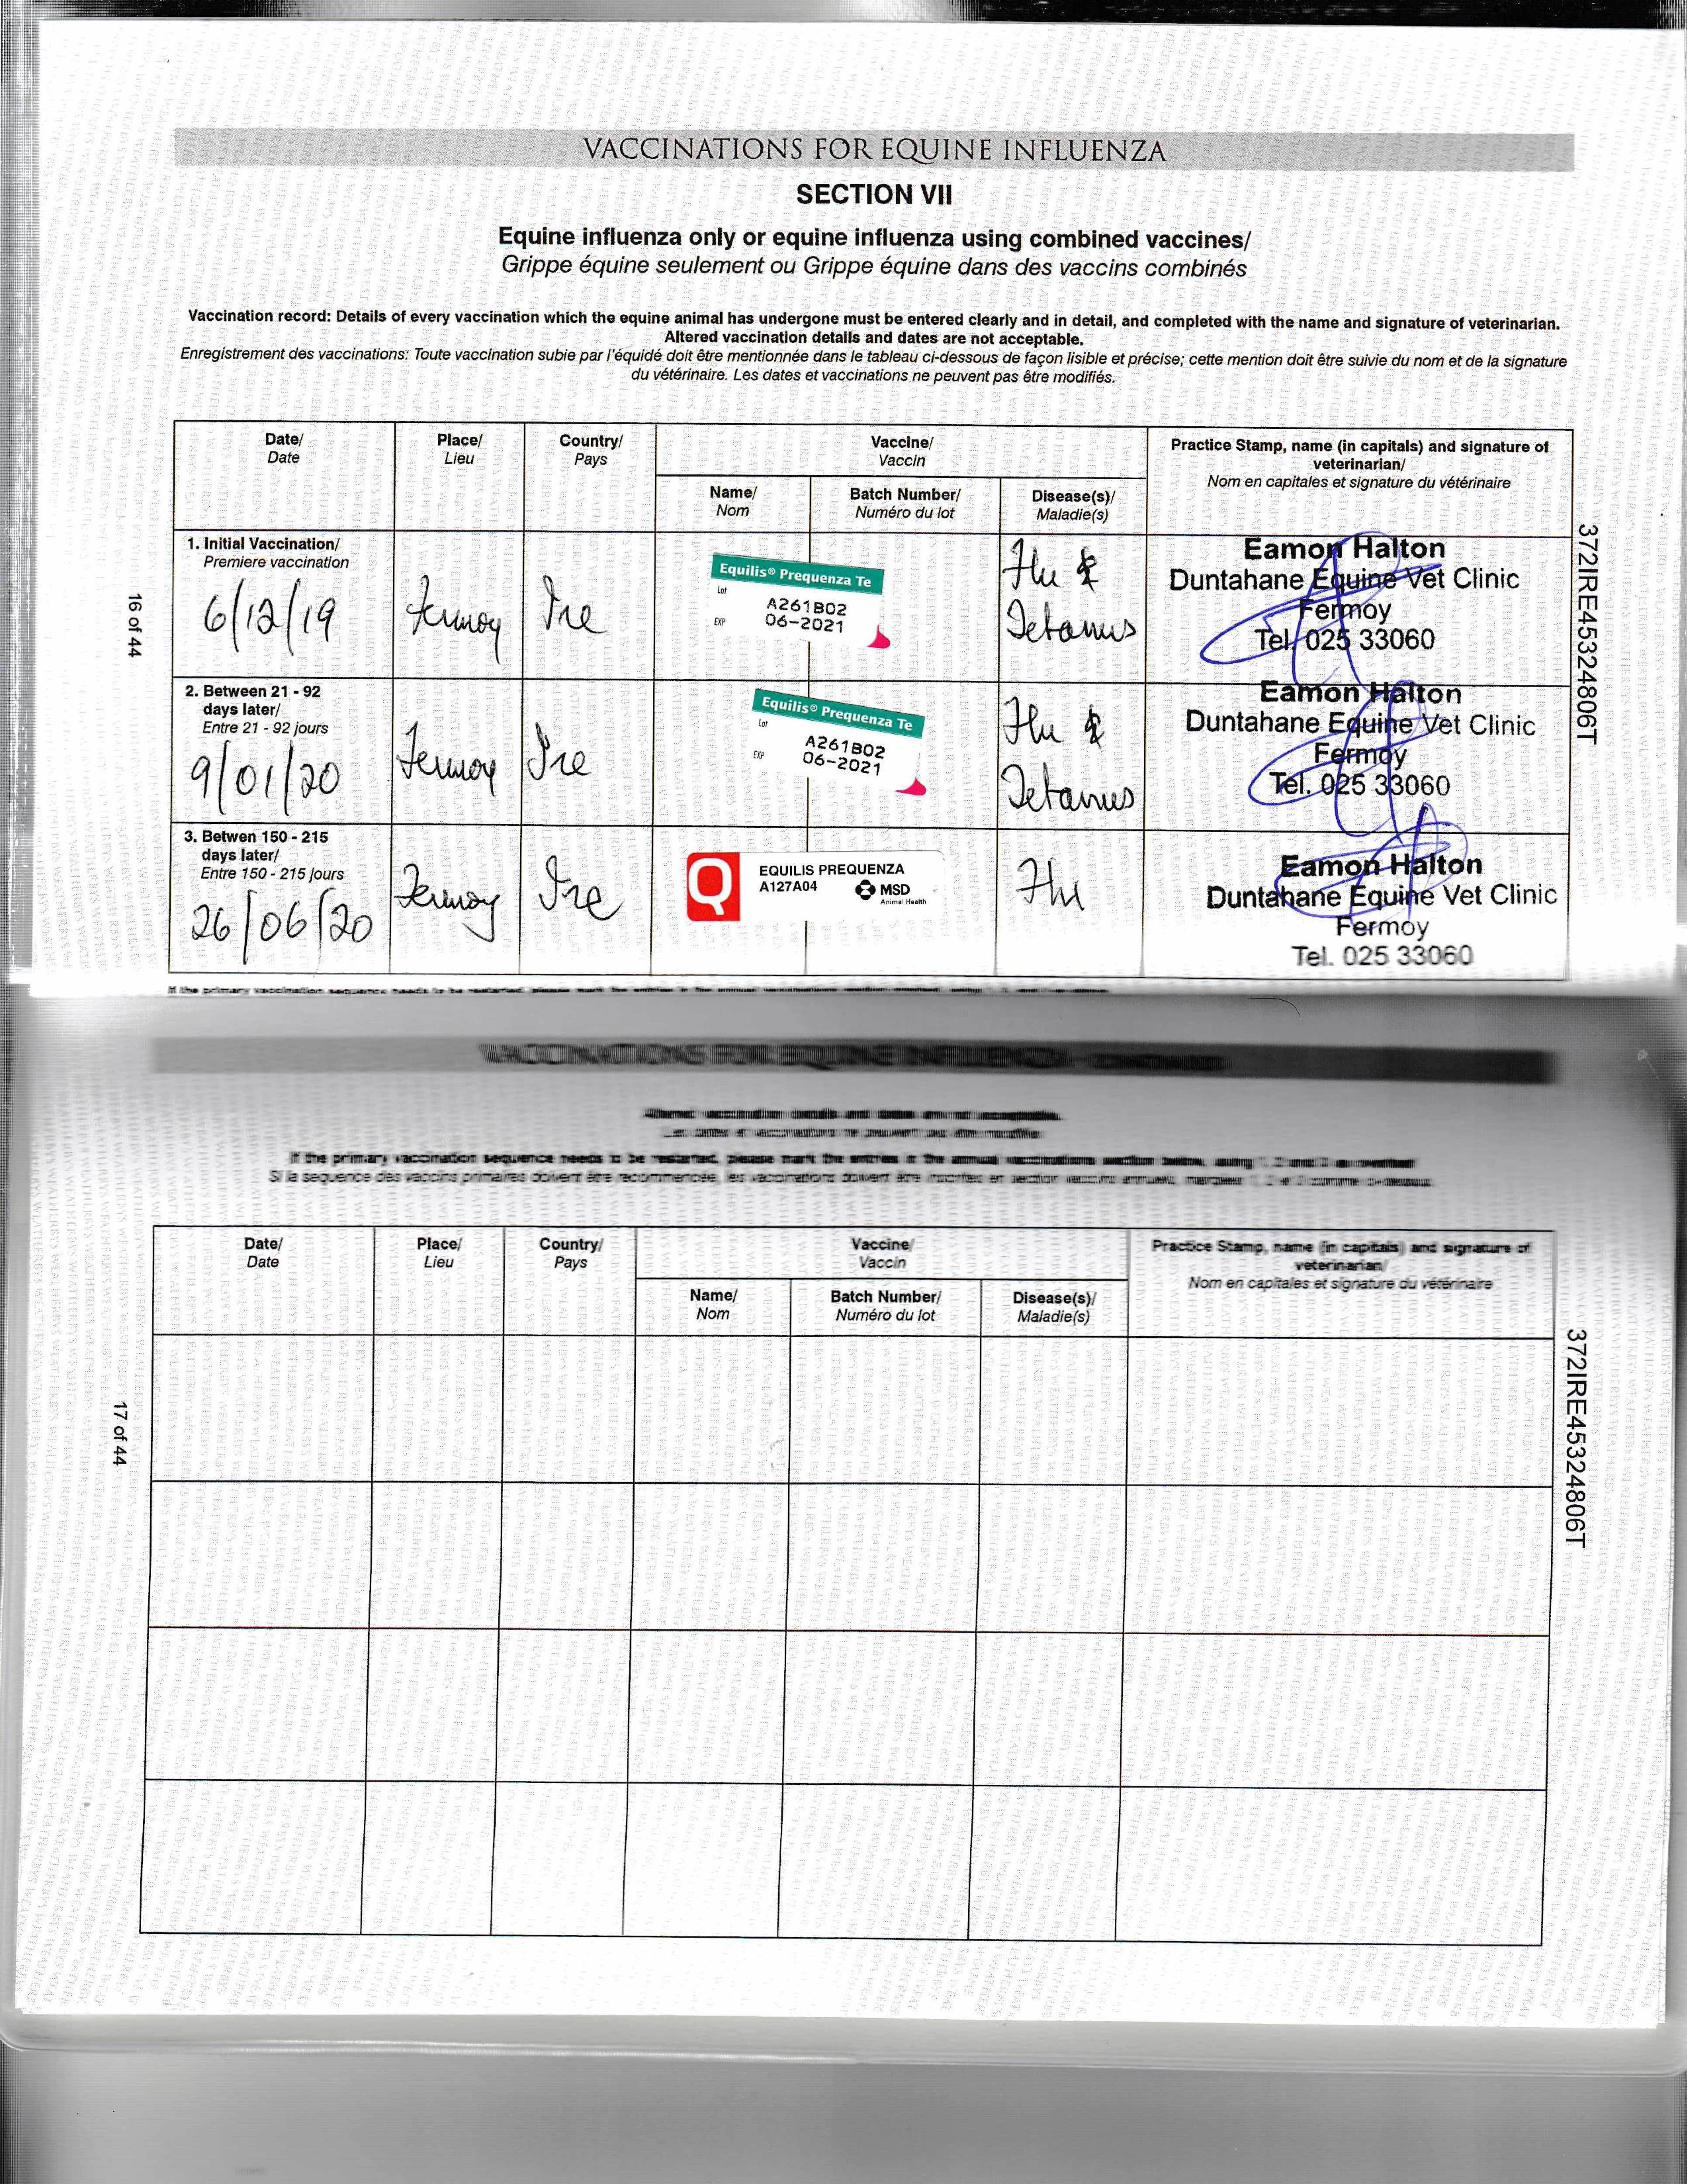 VACCINATIONS FOR EQUINE INFLUENZA
SECTION VII
Equine influenza only or equine influenza using combined vaccines/
Grippe équine seulement ou Grippe équine dans des vaccins combinés
Vaccination record: Details of every vaccination which the equine animal has undergone must be entered clearly and in detail, and completed with the name and signature of veterinarian.
Altered vaccination details and dates are not acceptable.
Enregistrement des vaccinations: Toute vaccination subie par l'équidé doit être mentionnée dans le tableau ci-dessous de façon lisible et précise; cette mention doit être suivie du nom et de la signature
du vétérinaire. Les dates et vaccinations ne peuvent pas être modifiés.
Date/
Date
Place/
Lieu
Country/
Pays
Vaccine/
Vaccin
Name/
Nom
Batch Number/
Numéro du lot
Disease(s)/
Maladie(s)
Practice Stamp, name (in capitals) and signature of
veterinarian/
Nom en capitales et signature du vétérinaire
1. Initial Vaccination/
Premiere vaccination
6/12/19
Fermoy
Ire
Equilis® Prequenza Te
Lot
A261B02
EXP
06-2021
Flu &
Tetanus
Eamon Halton
Duntahane Equine Vet Clinic
Fermoy
Tel. 025 33060
2. Between 21 - 92
days later/
Entre 21 - 92 jours
9/01/20
Fermoy
Ire
Equilis® Prequenza Te
Lot
A261B02
EXP
06-2021
Flu &
Tetanus
Eamon Halton
Duntahane Equine Vet Clinic
Fermoy
Tel. 025 33060
3. Betwen 150 - 215
days later/
Entre 150 - 215 jours
26/06/20
Fermoy
Ire
Q
EQUILIS PREQUENZA
A127A04
MSD
Animal Health
Flu
Eamon Halton
Duntahane Equine Vet Clinic
Fermoy
Tel. 025 33060
16 of 44
372IRE45324806T
If the primary vaccination sequence needs to be restarted, please mark the entries in the annual vaccinations section
VACCINATIONS FOR EQUINE INFLUENZA
Altered vaccination details and dates are not acceptable.
Les dates et vaccinations ne peuvent pas être modifiés
If the primary vaccination sequence needs to be restarted, please mark the entries in the annual vaccinations section below, using 1, 2 and 3 as overleaf
Si la sequence des vaccins primaires doivent être recommencée, les vaccinations doivent être inscrites en section vaccins annuels, marquées 1, 2 et 3 comme ci-dessus.
Date/
Date
Place/
Lieu
Country/
Pays
Vaccine/
Vaccin
Name/
Nom
Batch Number/
Numéro du lot
Disease(s)/
Maladie(s)
Practice Stamp, name (in capitals) and signature of
veterinarian/
Nom en capitales et signature du vétérinaire
17 of 44
372IRE45324806T